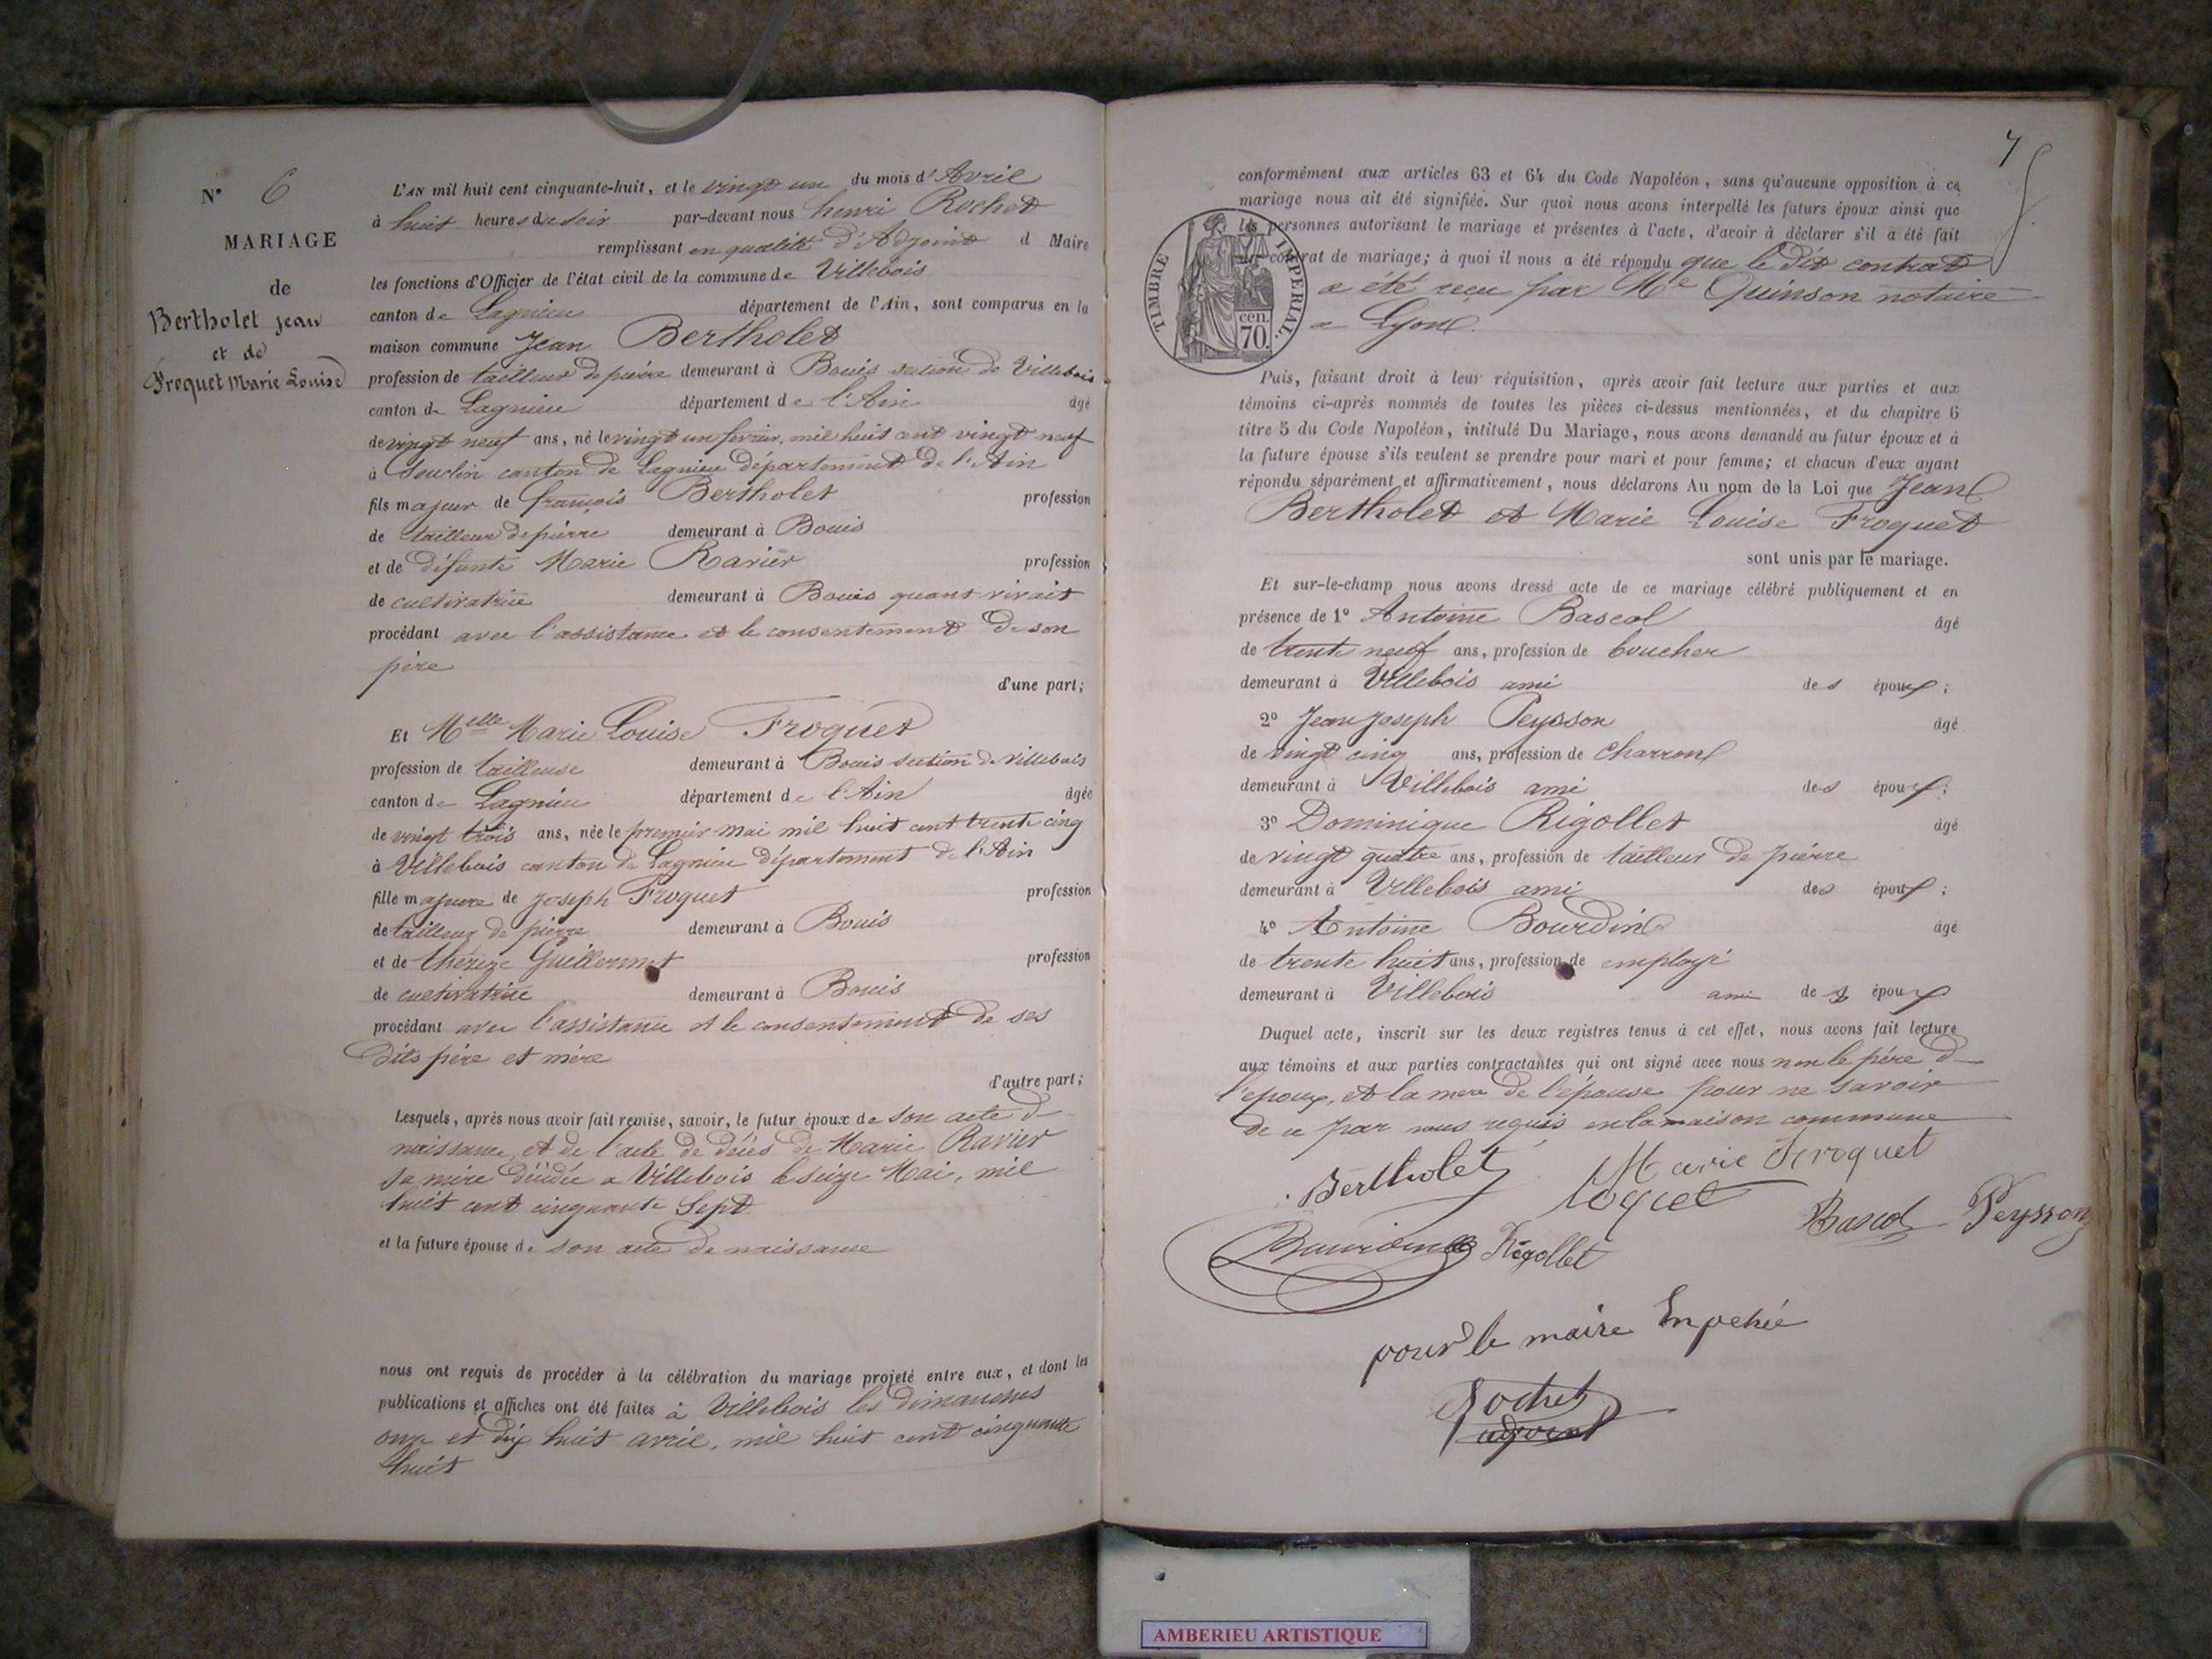 N° 6
MARIAGE
de
Bertholet Jean
et de
Froquet Marie Louise
L'AN mil huit cent cinquante-huit, et le vingt un du mois d'Avril
à huit heures du soir par-devant nous henri Rochet
remplissant en qualité d'Adjoint d Maire
les fonctions d'Officier de l'état civil de la commune de Villebois
canton de Lagnieu département de l'Ain, sont comparus en la
maison commune Jean Bertholet
profession de tailleur de pierre demeurant à Bouis section de Villebois
canton de Lagnieu département de l'Ain âgé
de vingt neuf ans, né le vingt un fevrier, mil huit cent vingt neuf
à Souclin canton de Lagnieu département de l'Ain
fils majeur de françois Bertholet profession
de tailleur de pierre demeurant à Bouis
et de défunte Marie Ravier profession
de cultivatrice demeurant à Bouis quant vivait
procédant avec l'assistance et le consentement de son
père
d'une part;
Et Melle Marie Louise Froquet
profession de tailleuse demeurant à Bouis section de Villebois
canton de Lagnieu département de l'Ain âgée
de vingt trois ans, née le premier mai mil huit cent trente cinq
à Villebois canton de Lagnieu département de l'Ain
fille majeure de joseph Froquet profession
de tailleur de pierre demeurant à Bouis
et de thérèze Guillermet profession
de cultivatrice demeurant à Bouis
procédant avec l'assistance et le consentement de ses
dits père et mère
d'autre part;
Lesquels, après nous avoir fait remise, savoir, le futur époux de son acte d
naissance, et de l'acte de décès de Marie Ravier
sa mère décédée a Villebois le seize Mai, mil
huit cent cinquante Sept
et la future épouse de son acte de naissance
nous ont requis de procéder à la célébration du mariage projeté entre eux, et dont les
publications et affiches ont été faites à Villebois les dimanches
onze et dix huit avril, mil huit cent cinquante
huit
7
conformément aux articles 63 et 64 du Code Napoléon, sans qu'aucune opposition à ce
mariage nous ait été signifiée. Sur quoi nous avons interpellé les futurs époux ainsi que
les personnes autorisant le mariage et présentes à l'acte, d'avoir à déclarer s'il a été fait
contrat de mariage; à quoi il nous a été répondu que le dit contrat
a été reçu par Me Quinson notaire
a Lyon
TIMBRE IMPERIAL.
cen.
70.
Puis, faisant droit à leur réquisition, après avoir fait lecture aux parties et aux
témoins ci-après nommés de toutes les pièces ci-dessus mentionnées, et du chapitre 6
titre 5 du Code Napoléon, intitulé Du Mariage, nous avons demandé au futur époux et à
la future épouse s'ils veulent se prendre pour mari et pour femme; et chacun d'eux ayant
répondu séparément et affirmativement, nous déclarons Au nom de la Loi que Jean
Bertholet et Marie Louise Froquet
sont unis par le mariage.
Et sur-le-champ nous avons dressé acte de ce mariage célébré publiquement et en
présence de 1° Antoine Bascol âgé
de trente neuf ans, profession de boucher
demeurant à Villebois ami des époux;
2° Jean Joseph Peysson âgé
de vingt cinq ans, profession de Charron
demeurant à Villebois ami des époux;
3° Dominique Rigollet âgé
de vingt quatre ans, profession de tailleur de pierre
demeurant à Villebois ami des époux;
4° Antoine Bourdin âgé
de trente huit ans, profession de employé
demeurant à Villebois ami des époux
Duquel acte, inscrit sur les deux registres tenus à cet effet, nous avons fait lecture
aux témoins et aux parties contractantes qui ont signé avec nous non le père d
l'époux, et la mere de l'épouse pour ne savoir
de ce par nous requis en la maison commune
Bertholet Marie Froquet
Bascol Peysson
Bourdin Rigollet
pour le maire Empehée
Rochet
adjoint
AMBERIEU ARTISTIQUE